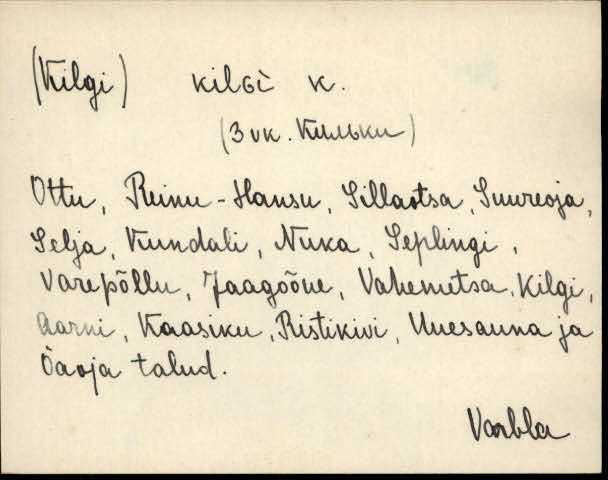 (Kilgi) kilɢì k.
(3 vk. Кильки)
Ottu, Reinu-Hansu, Sillaotsa, Suureoja,
Selja, Kundali, Nuka, Seplingi,
Varepõllu, Jaagõõue, Vahemetsa, Kilgi,
Aarni, Kaasiku, Ristikivi, Uuesauna ja
Õaoja talud.
Varbla